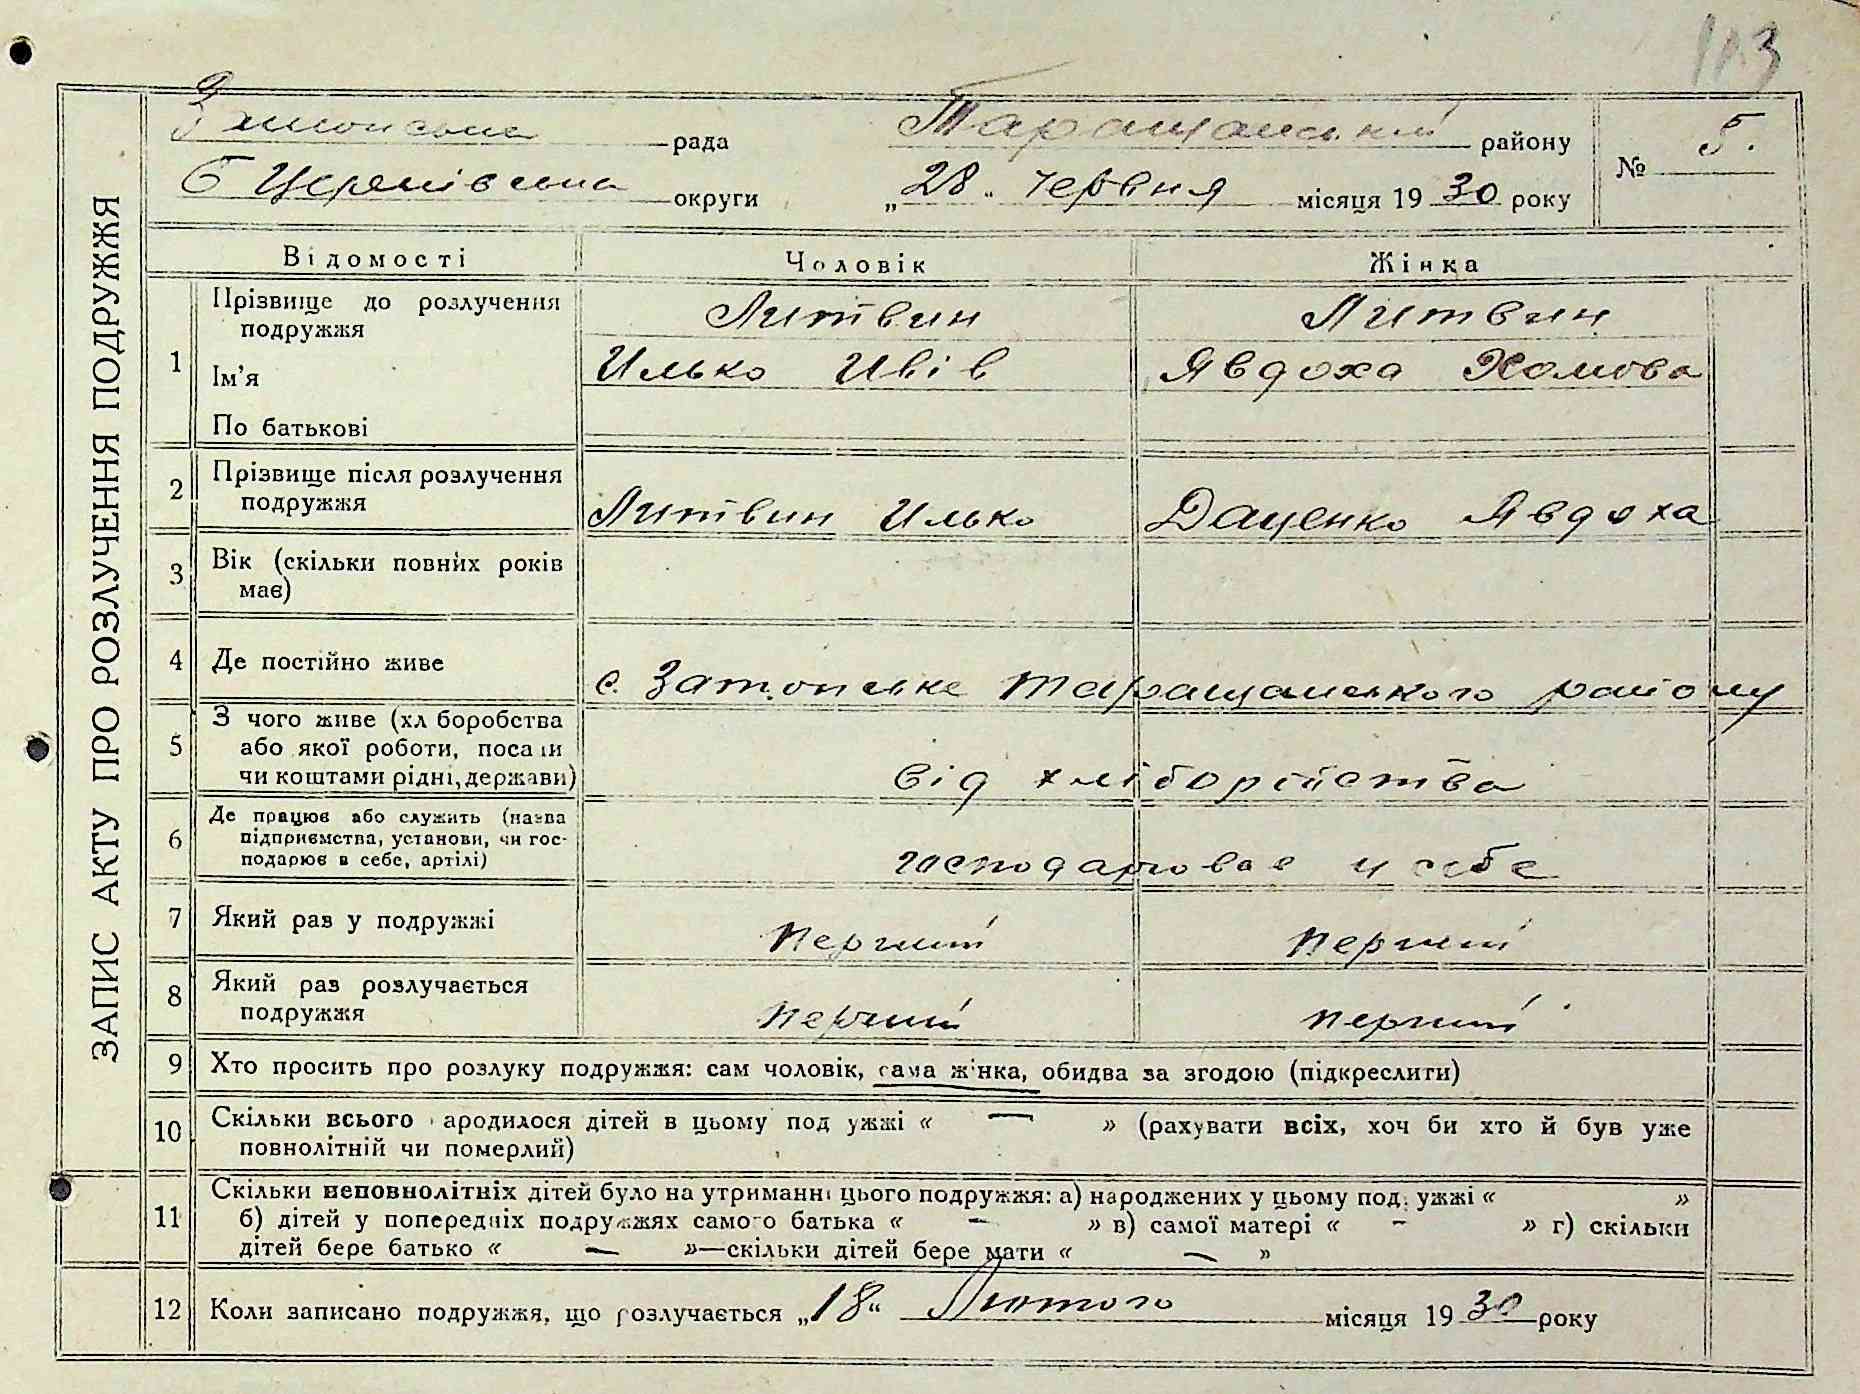 113
ЗАПИС АКТУ ПРО РОЗЛУЧЕННЯ ПОДРУЖЖЯ
рада Таращанський району № 5.
Б Церківська округи „28" червня місяця 1930 року
Відомості Чоловік Жінка
1 Прізвище до розлучення подружжя Литвин Литвин
Ім'я Илько Ивів Явдоха Хомова
По батькові
2 Прізвище після розлучення подружжя Литвин Илько Даценко Явдоха
3 Вік (скільки повних років має)
4 Де постійно живе с. Затонське Таращанського району
5 З чого живе (хл боробства або якої роботи, посади чи коштами рідні, держави) від хліборобства
6 Де працює або служить (назва підприємства, установи, чи господарює в себе, артілі) господарював у себе
7 Який раз у подружжі перший перший
8 Який раз розлучається подружжя перший перший
9 Хто просить про розлуку подружжя: сам чоловік, сама жінка, обидва за згодою (підкреслити)
10 Скільки всього народилося дітей в цьому под ужжі « — » (рахувати всіх, хоч би хто й був уже
повнолітній чи померлий)
11 Скільки неповнолітніх дітей було на утриманні цього подружжя: а) народжених у цьому под. ужжі « »
б) дітей у попередніх подружжях самого батька « — » в) самої матері « — » г) скільки
дітей бере батько « — »—скільки дітей бере мати « — »
12 Коли записано подружжя, що розлучається „18" Лютого місяця 1930 року